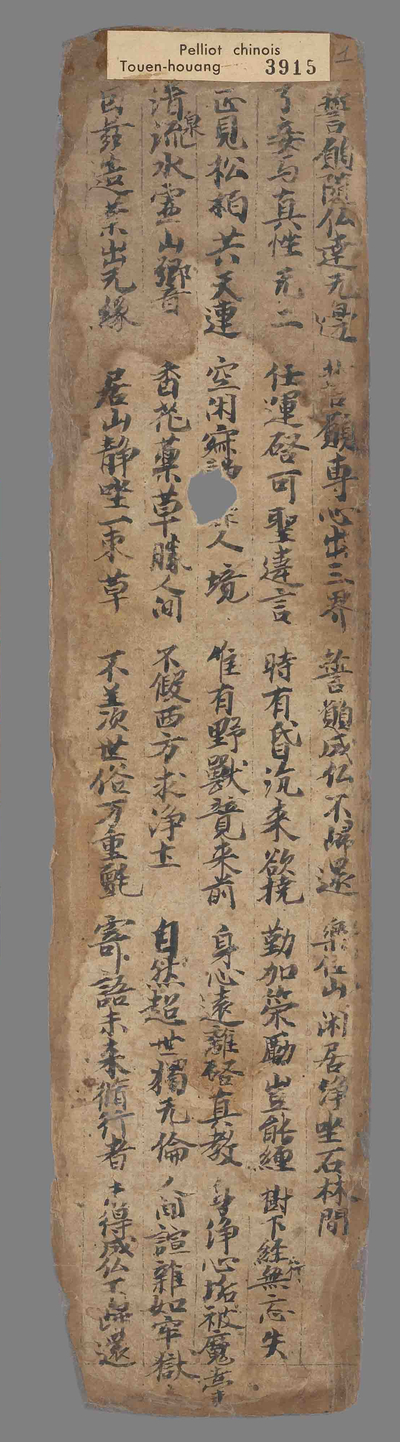 Pelliot chinois
Touen-houang 3915
1
誓願蔭仏達无邊 誓願專心出三界 誓願成仏不帰還 樂住山閑居淨坐石林間
了妄与真性无二 任運啓可聖違言 時有昏沉来欲挠 勤加策勵豈能纏 樹下経行無忘失
正見松柏共天連 空閑寂 人境 唯有野獸竟来前 身心遠離啓真教 淨心 被魔牽
清泉流水霊山響音 香花菓草勝人间 不假西方求浄土 自然超世獨无倫 人间諠雜如牢獄
造業出无緣 居山静坐一束草 不羨世俗万重氈 寄語未来脩行者 得成仏不歸還